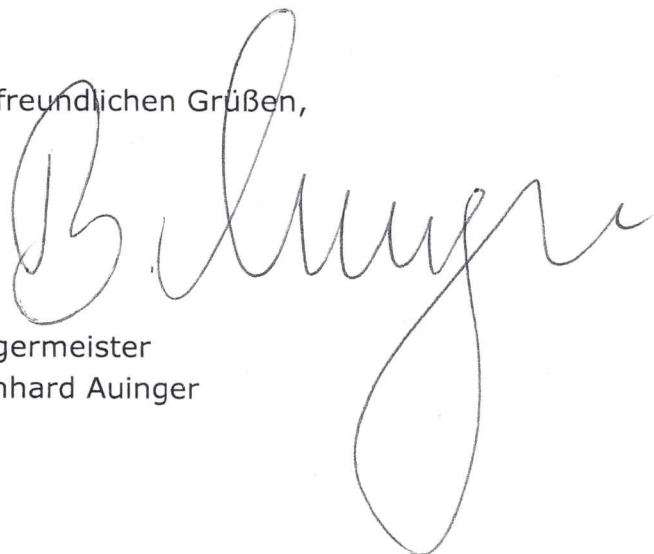 freundlichen Grüßen,
B. Auinger
germeister
nhard Auinger